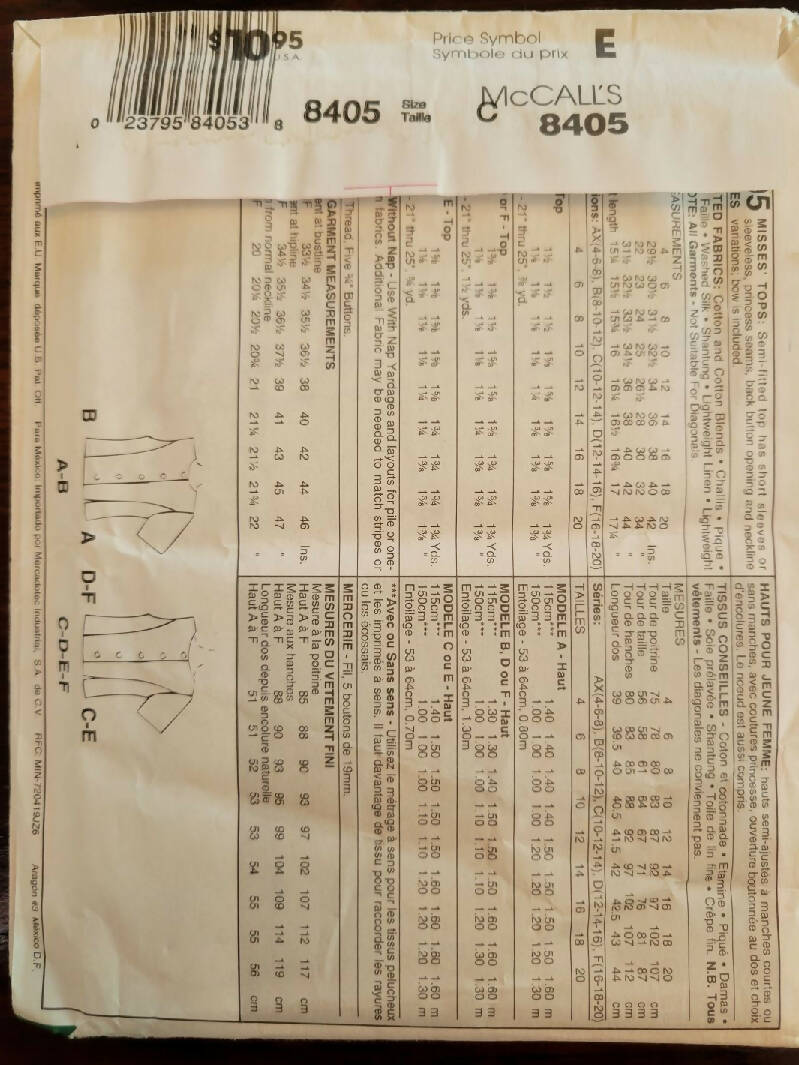 $10.95
U.S.A.
Price Symbol E
Symbole du prix
0 23795 84053 8
8405 Size C
Taille
McCALL'S
8405
5 MISSES' TOPS: Semi-fitted top has short sleeves or
sleeveless, princess seams, back button opening and neckline
variations, bow is included.
TED FABRICS: Cotton and Cotton Blends • Challis • Pique •
Faille • Washed Silk • Shantung • Lightweight Linen • Lightweight
OTE: All Garments - Not Suitable For Diagonals
ASUREMENTS
4 6 8 10 12 14 16 18 20
29½ 30½ 31½ 32½ 34 36 38 40 42 Ins.
22 23 24 25 26½ 28 30 32 34 "
31½ 32½ 33½ 34½ 36 38 40 42 44 "
length 15¼ 15½ 15¾ 16 16¼ 16½ 16¾ 17 17¼ "
ions: AX(4-6-8), B(8-10-12), C(10-12-14), D(12-14-16), F(16-18-20)
4 6 8 10 12 14 16 18 20
Top
1½ 1½ 1⅝ 1⅝ 1⅝ 1⅝ 1⅝ 1¾ Yds.
- 21" thru 25", ⅞ yd.
or F - Top
- 21" thru 25", 1½ yds.
E - Top
- 21" thru 25", ¾ yd.
Without Nap - Use With Nap Yardages and layouts for pile or one-
fabrics. Additional Fabric may be needed to match stripes or
Thread, Five ¾" Buttons.
GARMENT MEASUREMENTS
ent at bustline
F 33½ 34½ 35½ 36½ 38 40 42 44 46 Ins.
ent at hipline
F 34½ 35½ 36½ 37½ 39 41 43 45 47 "
from normal neckline
F 20 20¼ 20½ 20¾ 21 21¼ 21½ 21¾ 22 "
HAUTS POUR JEUNE FEMME: hauts semi-ajustés à manches courtes ou
sans manches, avec coutures princesse, ouverture boutonnée au dos et choix
d'encolures. Le noeud est aussi compris.
TISSUS CONSEILLES - Coton et cotonnade • Etamine • Piqué • Damas •
Faille • Soie prélavée • Shantung • Toile de lin fine • Crêpe fin. N.B. Tous
vêtements - Les diagonales ne conviennent pas.
MESURES
Taille 4 6 8 10 12 14 16 18 20
Tour de poitrine 75 78 80 83 87 92 97 102 107 cm
Tour de taille 56 58 61 64 67 71 76 81 87 cm
Tour de hanches 80 83 85 88 92 97 102 107 112 cm
Longueur dos 39 39.5 40 40.5 41.5 42 42.5 43 44 cm
Séries: AX(4-6-8), B(8-10-12), C(10-12-14), D(12-14-16), F(16-18-20)
TAILLES 4 6 8 10 12 14 16 18 20
MODELE A - Haut
115cm*** 1.40 1.40 1.40 1.40 1.50 1.50 1.50 1.50 1.60 m
150cm*** 1.00 1.00 1.00 1.00 1.20 1.20 1.20 1.20 1.30 m
Entoilage - 53 à 64cm, 0.80m
MODELE B, D ou F - Haut
115cm*** 1.30 1.30 1.40 1.50 1.50 1.50 1.60 1.60 1.60 m
150cm*** 1.00 1.00 1.00 1.10 1.10 1.20 1.20 1.30 1.30 m
Entoilage - 53 à 64cm, 1.30m
MODELE C ou E - Haut
115cm*** 1.40 1.50 1.50 1.50 1.50 1.60 1.60 1.60 1.60 m
150cm*** 1.00 1.00 1.00 1.10 1.10 1.20 1.20 1.20 1.30 m
Entoilage - 53 à 64cm, 0.70m
***Avec ou Sans sens - Utilisez le métrage à sens pour les tissus pelucheux
et les imprimés à sens. Il faut davantage de tissu pour raccorder les rayures
ou les écossais.
MERCERIE - Fil, 5 boutons de 19mm.
MESURES DU VETEMENT FINI
Mesure à la poitrine
Haut A à F 85 88 90 93 97 102 107 112 117 cm
Mesure aux hanches
Haut A à F 88 90 93 95 99 104 109 114 119 cm
Longueur dos depuis encolure naturelle
Haut A à F 51 51 52 53 53 54 55 55 56 cm
B A D-F C-E
A-B C-D-E-F
imprimé aux E.U. Marque déposée U.S. Pat. Off. Para México: Importado por Mercadotec Industrial, S.A. de C.V. RFC MIN-720419JZ6 Aragón #9 México D.F.